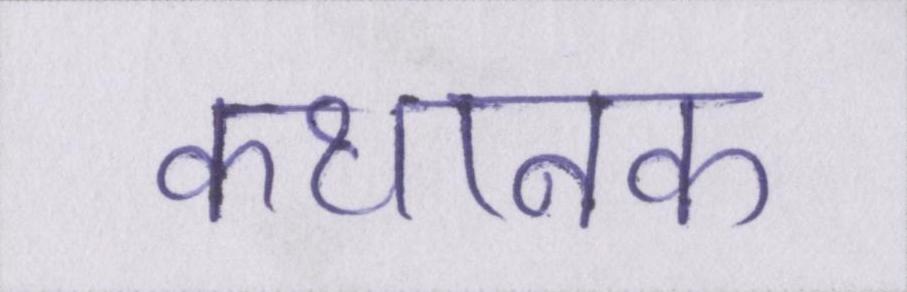 कथानक